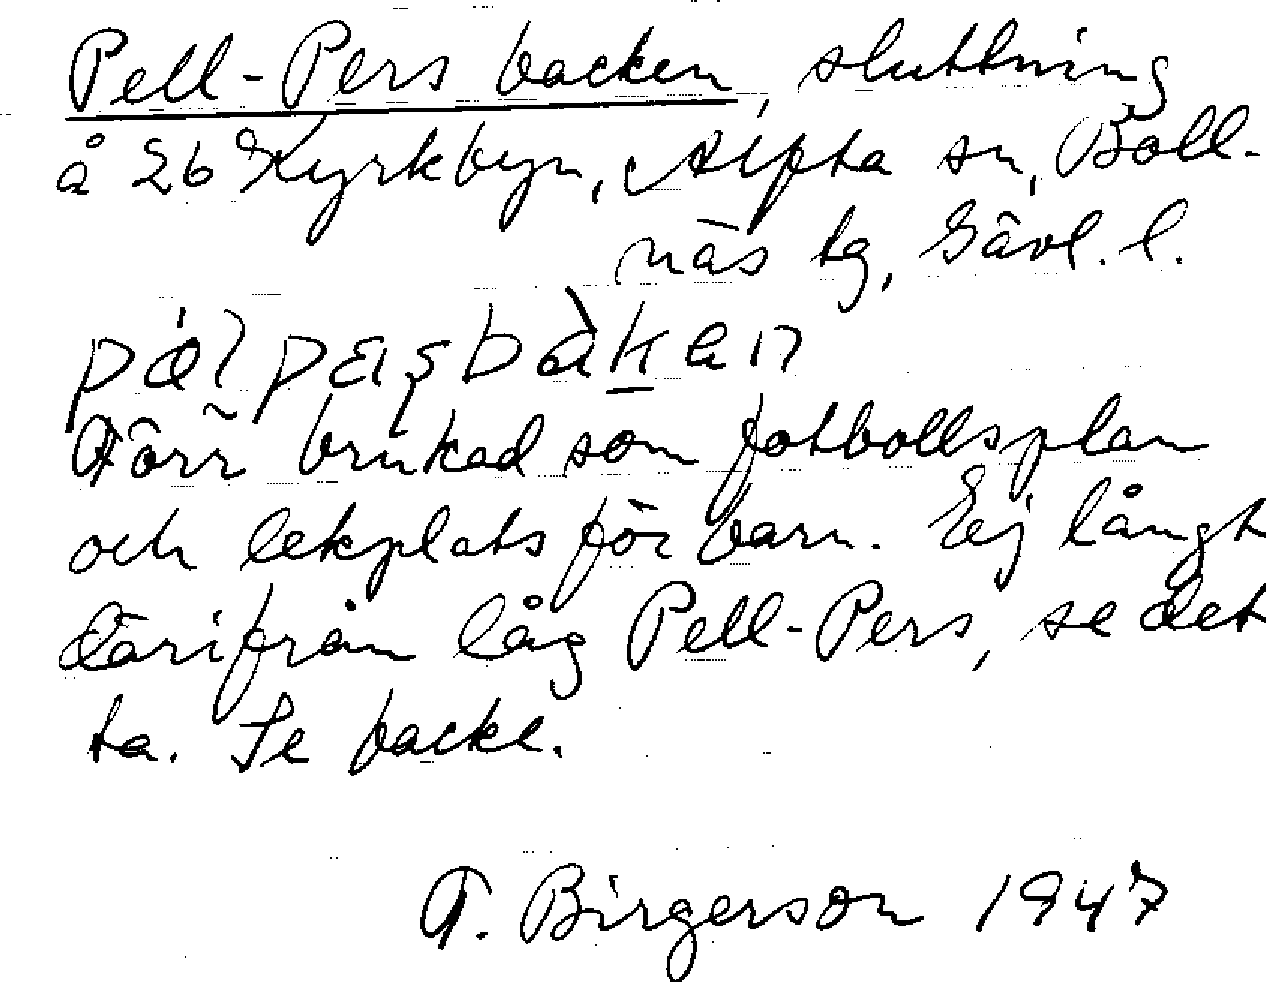 Pell-Pers backen, sluttning
å 26 Kyrkbyn, Alfta sn, Boll-
näs tg, Gävl. l.
Förr brukad som fotbollsplan
och lekplats för barn. Ej långt
därifrån låg Pell-Pers, se det
ta. Se backe.
F. Birgerson 1947